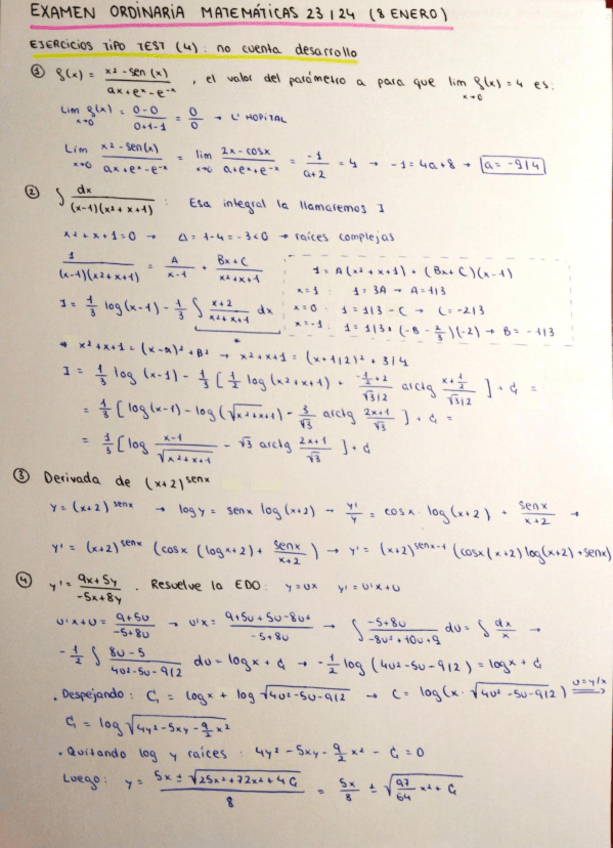 EXAMEN ORDINARIA MATEMÁTICAS 23/24 (8 ENERO)
EJERCICIOS TIPO TEST (4): no cuenta desarrollo
① f(x) = x²-sen(x) / ax+eˣ-e⁻ˣ , el valor del parámetro a para que lim x→0 f(x) = 4 es:
Lim x→0 f(x) = 0-0 / 0+1-1 = 0/0 → L'HOPITAL
Lim x→0 x²-sen(x) / ax+eˣ-e⁻ˣ = lim x→0 2x-cosx / a+eˣ+e⁻ˣ = -1 / a+2 = 4 → -1=4a+8 → a=-9/4
② ∫ dx / (x-1)(x²+x+1) : Esa integral la llamaremos I
x²+x+1=0 → Δ=1-4=-3<0 → raíces complejas
1 / (x-1)(x²+x+1) = A / x-1 + Bx+C / x²+x+1
1=A(x²+x+1)+(Bx+C)(x-1)
x=1: 1=3A → A=1/3
x=0: 1=1/3-C → C=-2/3
x=-1: 1=1/3+(-B-2/3)(-2) → B=-1/3
I = 1/3 log(x-1) - 1/3 ∫ x+2 / x²+x+1 dx
* x²+x+1=(x-α)²+β² → x²+x+1=(x+1/2)²+3/4
I = 1/3 log(x-1) - 1/3 [ 1/2 log(x²+x+1) + -1/2+2 / √3/2 arctg x+1/2 / √3/2 ] + C =
= 1/3 [ log(x-1) - log(√x²+x+1) - 3/√3 arctg 2x+1 / √3 ] + C =
= 1/3 [ log x-1 / √x²+x+1 - √3 arctg 2x+1 / √3 ] + C
③ Derivada de (x+2)^senx
y=(x+2)^senx → logy = senx log(x+2) → y'/y = cosx·log(x+2) + senx / x+2 →
y' = (x+2)^senx (cosx (logx+2) + senx / x+2) → y' = (x+2)^senx-1 (cosx(x+2)log(x+2)+senx)
④ y' = 9x+5y / -5x+8y . Resuelve la EDO: y=ux y'=u'x+u
u'x+u = 9+5u / -5+8u → u'x = 9+5u+5u-8u² / -5+8u → ∫ -5+8u / -8u²+10u+9 du = ∫ dx/x →
-1/2 ∫ 8u-5 / 4u²-5u-9/2 du = logx + C → -1/2 log(4u²-5u-9/2) = logx + C
. Despejando: C = logx + log √4u²-5u-9/2 → C = log(x·√4u²-5u-9/2) u=y/x ⟹
C = log √4y²-5xy-9/2 x²
. Quitando log y raíces: 4y²-5xy-9/2 x²-C=0
Luego: y = 5x ± √25x²+72x²+4C / 8 = 5x/8 ± √97/64 x²+C